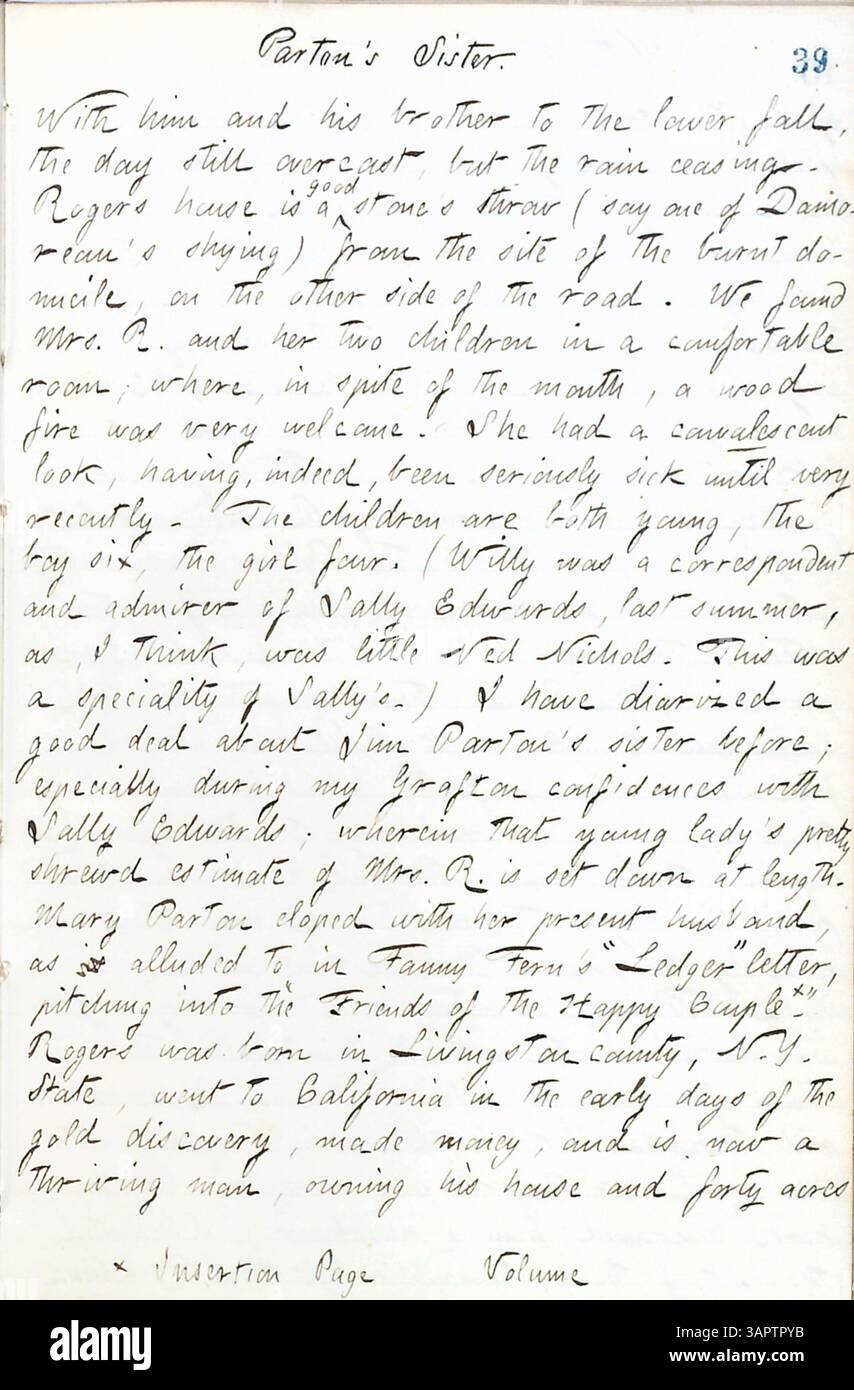 Parton's Sister.
39
With him and his brother to the lower fall,
the day still overcast, but the rain ceasing.
Rogers house is a good stone's throw ( say one of Damo-
reau's shying ) from the site of the burnt do-
micile, on the other side of the road. We found
Mrs. R. and her two children in a comfortable
room, where, in spite of the month, a wood
fire was very welcome. She had a convalescent
look, having, indeed, been seriously sick until very
recently. The children are both young, the
boy six, the girl four. (Willy was a correspondent
and admirer of Sally Edwards, last summer,
as, I think, was little Ned Nichols. This was
a speciality of Sally's.) I have diarized a
good deal about Jim Parton's sister before;
especially during my Grafton confidences with
Sally Edwards; wherein that young lady's pretty
shrewd estimate of Mrs. R. is set down at length.
Mary Parton eloped with her present husband,
as is alluded to in Fanny Fern's "Ledger" letter,
pitching into the "Friends of the Happy Couple x."
Rogers was born in Livingston county, N.Y.
State, went to California in the early days of the
gold discovery, made money, and is now a
thriving man, owning his house and forty acres
x Insertion Page Volume
alamy
Image ID: 3APTPYB
www.alamy.com